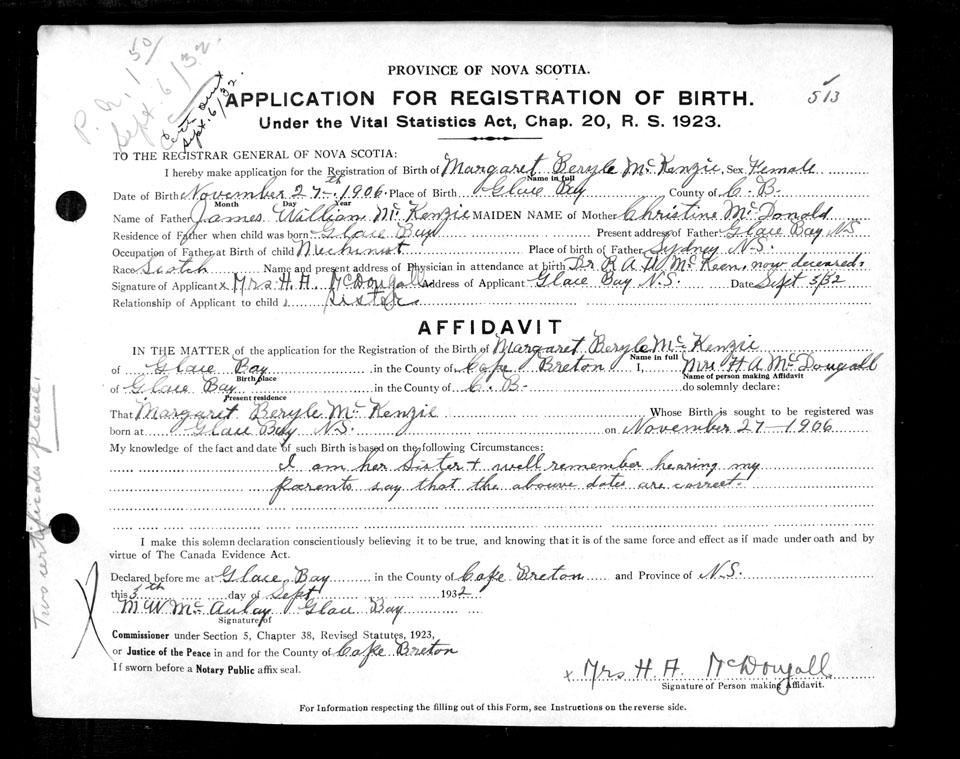 P. N. 1 50/
Sept. 6/32.
Cert sent
Sept. 6/32.
513
PROVINCE OF NOVA SCOTIA.
APPLICATION FOR REGISTRATION OF BIRTH.
Under the Vital Statistics Act, Chap. 20, R. S. 1923.
TO THE REGISTRAR GENERAL OF NOVA SCOTIA:
I hereby make application for the Registration of Birth of Margaret Beryle McKenzie Sex Female
Name in full
Date of Birth November 27th 1906. Place of Birth Glace Bay County of C. B.
Month Day Year
Name of Father James William McKenzie MAIDEN NAME of Mother Christine McDonald
Residence of Father when child was born Glace Bay Present address of Father Glace Bay N S
Occupation of Father at Birth of child Machinist Place of birth of Father Sydney N.S.
Race Scotch Name and present address of Physician in attendance at birth Dr R A H McKeen, now deceased.
Signature of Applicant x Mrs H. A. McDougall Address of Applicant Glace Bay N.S. Date Sept 5/32
Relationship of Applicant to child Sister
AFFIDAVIT
IN THE MATTER of the application for the Registration of the Birth of Margaret Beryle McKenzie
Name in full
of Glace Bay in the County of Cape Breton I, Mrs H A McDougall
Birth place Name of person making Affidavit
of Glace Bay in the County of C. B. do solemnly declare:
Present residence
That Margaret Beryle McKenzie Whose Birth is sought to be registered was
born at Glace Bay N.S. on November 27-1906
My knowledge of the fact and date of such Birth is based on the following Circumstances:
I am her Sister & well remember hearing my
parents say that the abouve dates are correct.
I make this solemn declaration conscientiously believing it to be true, and knowing that it is of the same force and effect as if made under oath and by
virtue of The Canada Evidence Act.
Declared before me at Glace Bay in the County of Cape Breton and Province of N.S.
this 5th day of Sept 1932
M W McAulay Glace Bay
Signature of
Commissioner under Section 5, Chapter 38, Revised Statutes, 1923,
or Justice of the Peace in and for the County of Cape Breton
If sworn before a Notary Public affix seal.
x Mrs H. A. McDougall
Signature of Person making Affidavit.
For Information respecting the filling out of this Form, see Instructions on the reverse side.
Two certificates please.